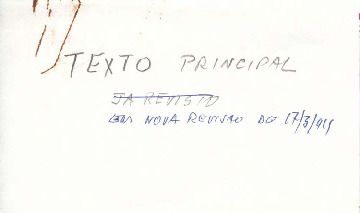 TEXTO PRINCIPAL
JÁ REVISTO
EM NOVA REVISÃO DO 17/3/